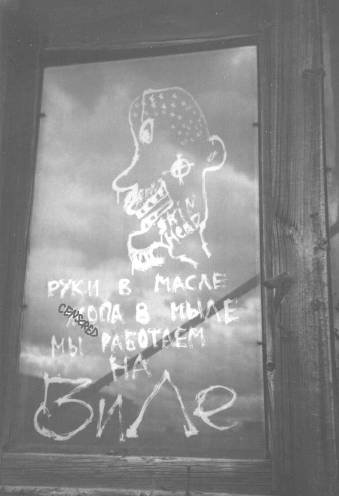 SKIN
HEAD
РУКИ В МАСЛЕ
CENSORED
ЖОПА В МЫЛЕ
МЫ РАБОТАЕМ
НА
ЗиЛе